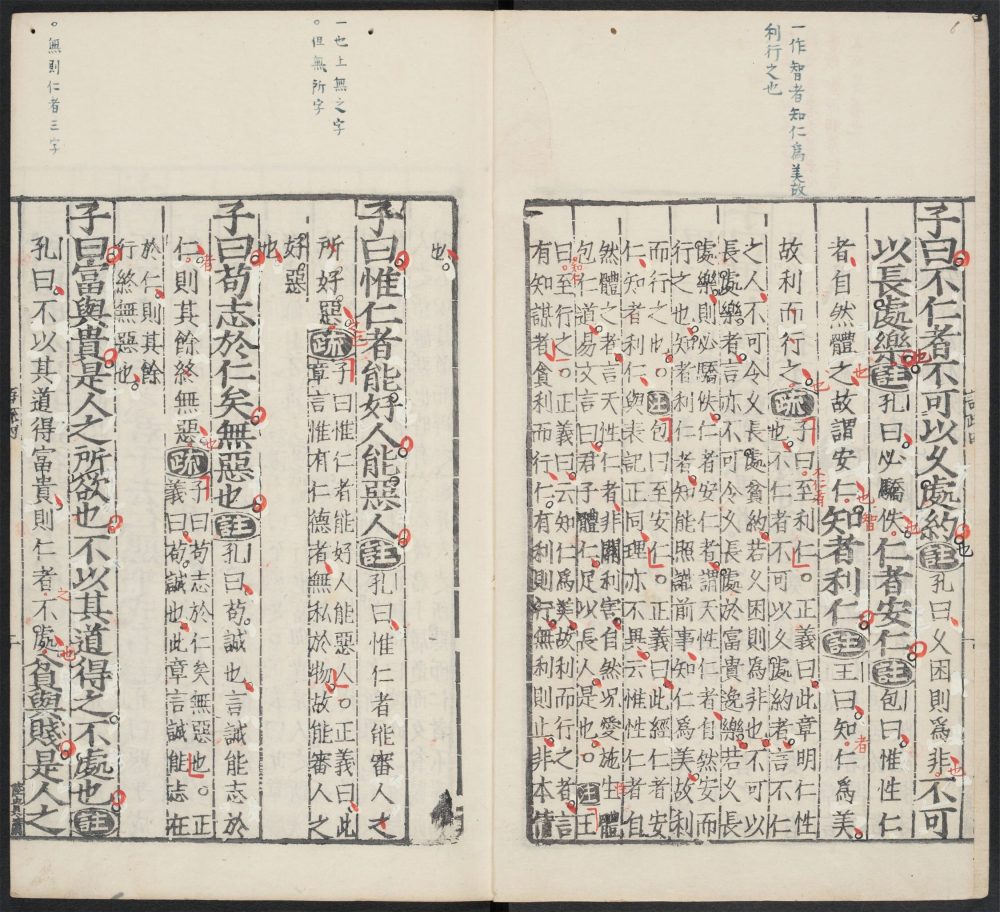 一作智者知仁爲美故
利行之也
子曰不仁者不可以久處約註孔曰久困則爲非不可
以長處樂註孔曰必驕佚仁者安仁註包曰惟性仁
者自然體之故謂安仁知者利仁註王曰知仁爲美
故利而行之疏子曰至利仁。正義曰此章明仁
仁者不可以久處約者言不仁
之人不可令久長處貧約若久困則為非也不可以
長處樂者言亦不可令久長處於富貴逸樂若久長
處樂則必驕佚仁者安仁者謂天性仁者自然安而
行之也知者利仁者知能照識前事知仁爲美故利
而行之也註包曰至安仁。正義曰此經仁者安
仁知者利仁與表記正同理亦不異云惟性仁者自
然體之者言天性仁者非關利害自然汎愛施生體
包仁道易文言曰君子體仁足以長人是也註王
曰至行之。正義曰云知仁爲美故利而行之者言
有知謀者貪利而行仁有利則行無利則止非本情
一也上無之字
。但無所字
。無則仁者三字
也
子曰惟仁者能好人能惡人註孔曰惟仁者能審人之
所好惡疏子曰惟仁者能好人能惡人。正義曰此
章言惟有仁德者無私於物故能審人之
好惡
也
子曰苟志於仁矣無惡也註孔曰苟誠也言誠能志於
仁則其餘終無惡疏子曰苟志於仁矣無惡也。正
義曰苟誠也此章言誠能志在
於仁則其餘
行終無惡也
子曰富與貴是人之所欲也不以其道得之不處也註
孔曰不以其道得富貴則仁者不處貧與賤是人之